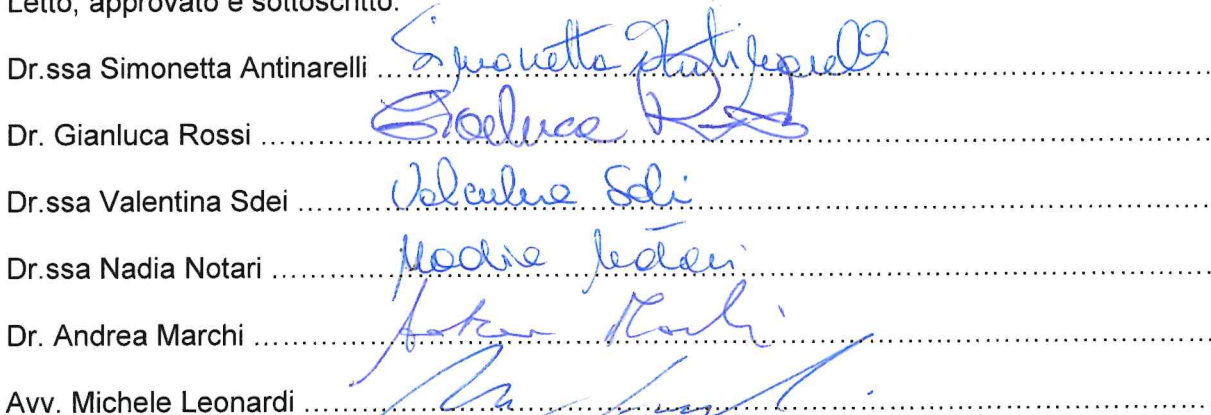 Letto, approvato e sottoscritto.
Dr.ssa Simonetta Antinarelli ..... Simonetta Antinarelli
Dr. Gianluca Rossi ..... Gianluca
Dr.ssa Valentina Sdei ..... Valentina Sdei
Dr.ssa Nadia Notari ..... Nadia Notari
Dr. Andrea Marchi ..... Andrea Marchi
Avv. Michele Leonardi .....